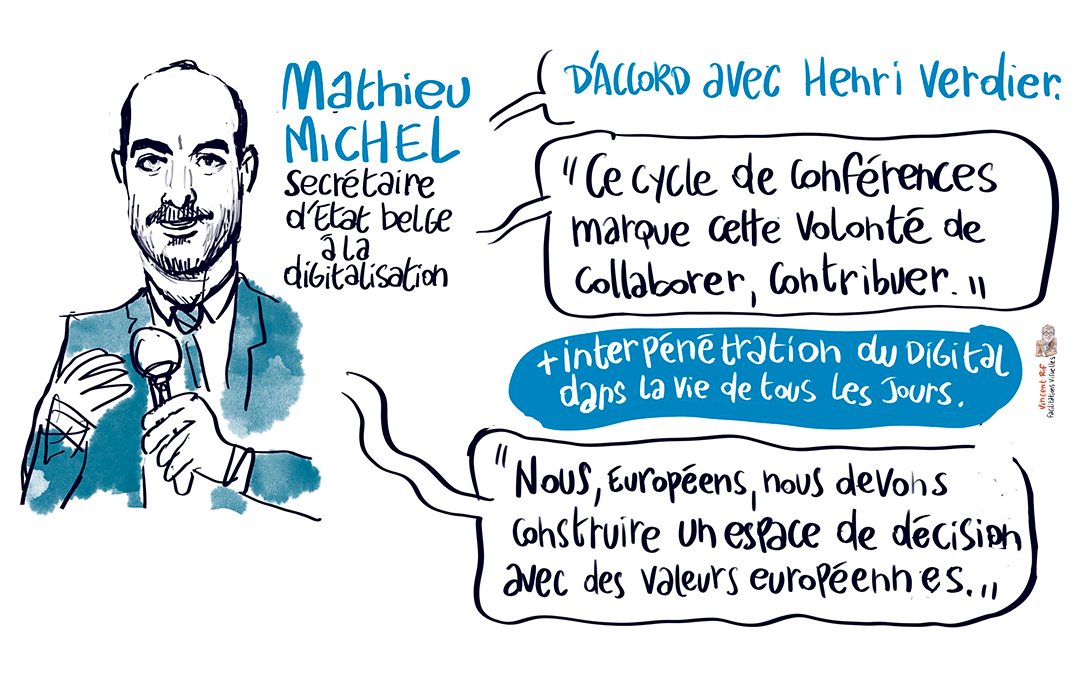 Mathieu
MICHEL
secrétaire
d'Etat belge
à la
digitalisation
D'ACCORD avec Henri Verdier.
"Ce cycle de conférences
marque cette volonté de
collaborer, contribuer."
+ interpénétration du DiGital
dans la vie de tous les jours.
"Nous, européens, nous devons
construire un espace de décision
avec des valeurs européennes..."
Vincent Rif
Facilitations Visuelles